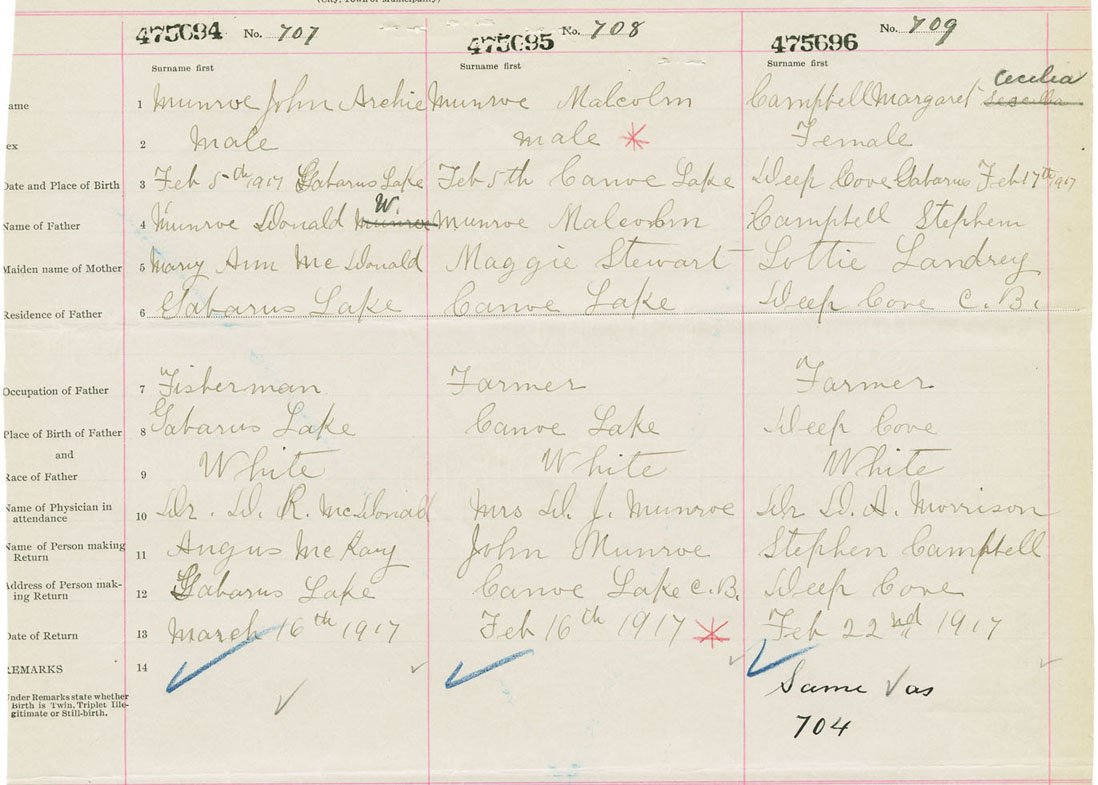 (City, Town or Municipality)
475694 No. 707 475695 No. 708 475696 No. 709
Surname first Surname first Surname first
ame 1 Munroe John Archie Munroe Malcolm Campbell Margaret Cecilia
ex 2 Male male Female
Date and Place of Birth 3 Feb 5th 1917 Gabarus Lake Feb 5th Canoe Lake Deep Cove Gabarus Feb 17th 1917
Name of Father 4 Munroe Donald W. Munroe Munroe Malcolm Campbell Stephen
Maiden name of Mother 5 Mary Ann McDonald Maggie Stewart Lottie Landrey
Residence of Father 6 Gabarus Lake Canoe Lake Deep Cove C. B.
Occupation of Father 7 Fisherman Farmer Farmer
Place of Birth of Father 8 Gabarus Lake Canoe Lake Deep Cove
and
Race of Father 9 White White White
Name of Physician in
attendance 10 Dr. D. R. McDonald Mrs D. J. Munroe Dr D. A. Morrison
Name of Person making
Return 11 Angus McKay John Munroe Stephen Campbell
Address of Person mak-
ing Return 12 Gabarus Lake Canoe Lake C.B. Deep Cove
Date of Return 13 March 16th 1917 Feb 16th 1917 Feb 22nd 1917
REMARKS 14
Under Remarks state whether
Birth is Twin, Triplet Ille-
gitimate or Still-birth.
Same as
704